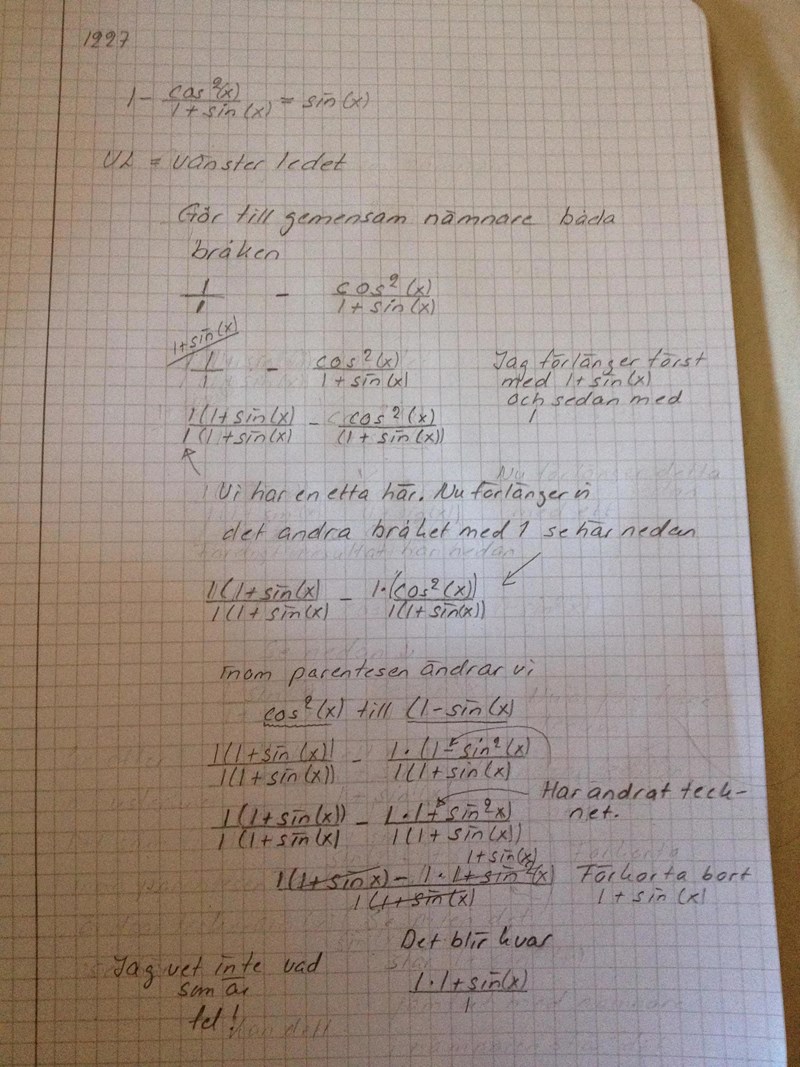 1227
1 - cos²(x) / 1 + sin(x) = sin(x)
VL = vänster ledet
Gör till gemensam nämnare båda
bråken
1/1 - cos²(x) / 1 + sin(x)
1+sin(x)
1/1 - cos²(x) / 1 + sin(x)
Jag förlänger först
med 1+sin(x)
och sedan med
1
1(1+sin(x) / 1(1+sin(x) - cos²(x) / (1+sin(x))
Vi har en etta här. Nu förlänger vi
det andra bråket med 1 se här nedan
1(1+sin(x) / 1(1+sin(x) - 1·(cos²(x)) / 1(1+sin(x))
Inom parentesen ändrar vi
cos²(x) till (1-sin(x)
1(1+sin(x)) / 1(1+sin(x)) - 1·(1-sin²(x) / 1(1+sin(x)
Har ändrat teck-
net.
1(1+sin(x)) / 1(1+sin(x) - 1·1+sin²x) / 1(1+sin(x))
1+sin(x)
1(1+sin x) - 1·1+sin²(x) / 1(1+sin(x)
Förkorta bort
1+sin(x)
Det blir kvar
1·1+sin(x) / 1
Jag vet inte vad
som är
fel!